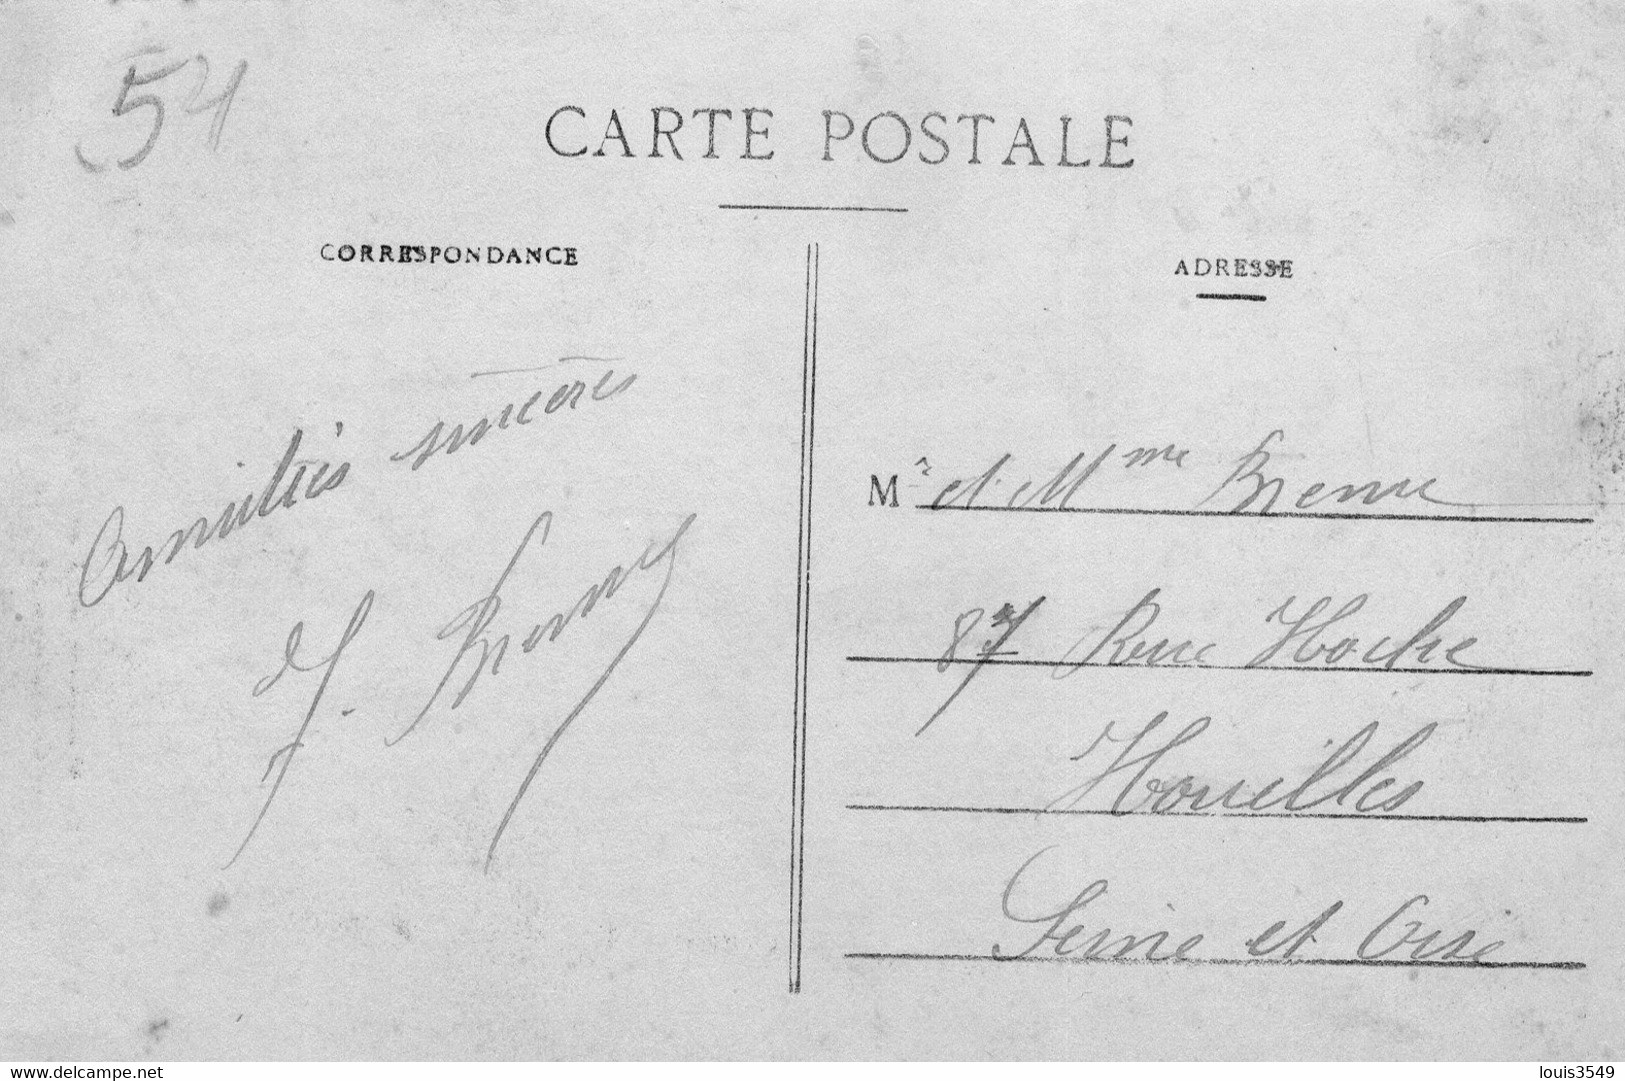 54
CARTE POSTALE
CORRESPONDANCE
Amitiés sincères
ADRESSE
Mr et Mme
87 Rue Hoche
Houilles
Seine et Oise
www.delcampe.net
louis3549